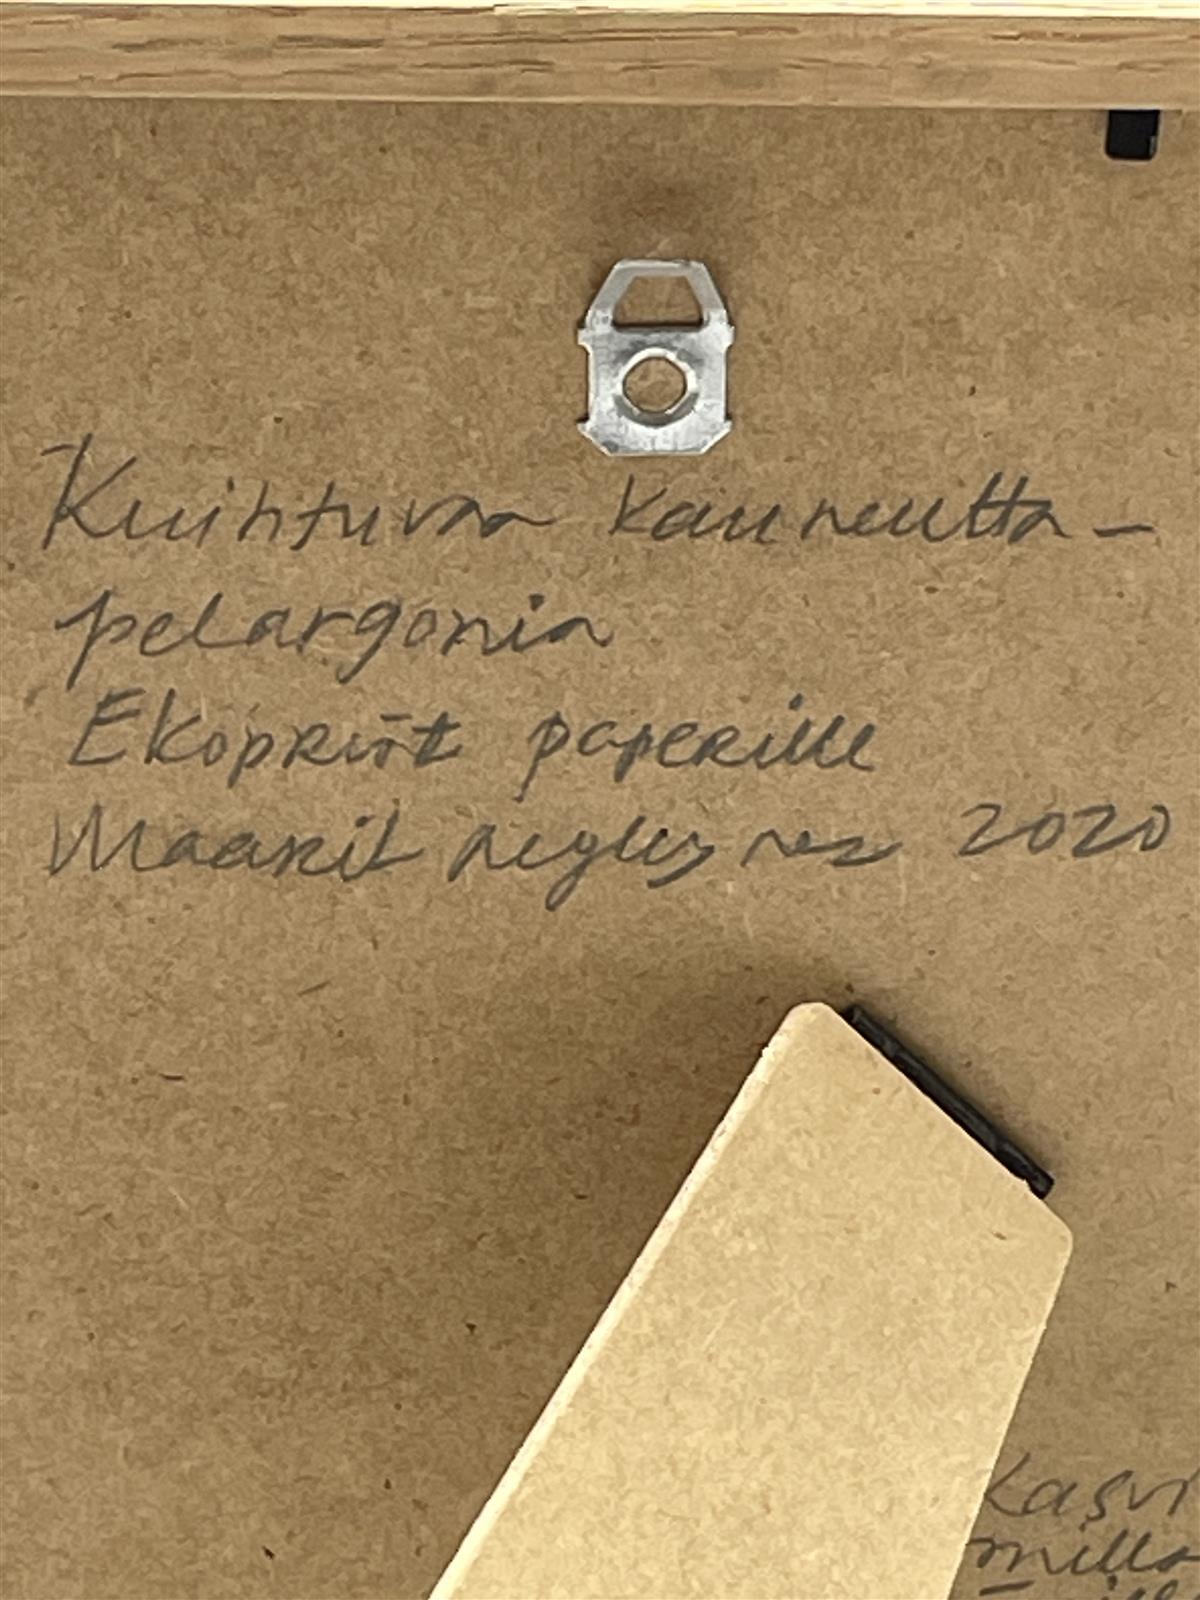 Kuihtuvaa kauneutta -
pelargonia
Ekoprint paperille
Maarit 2020
Kasvi
milla